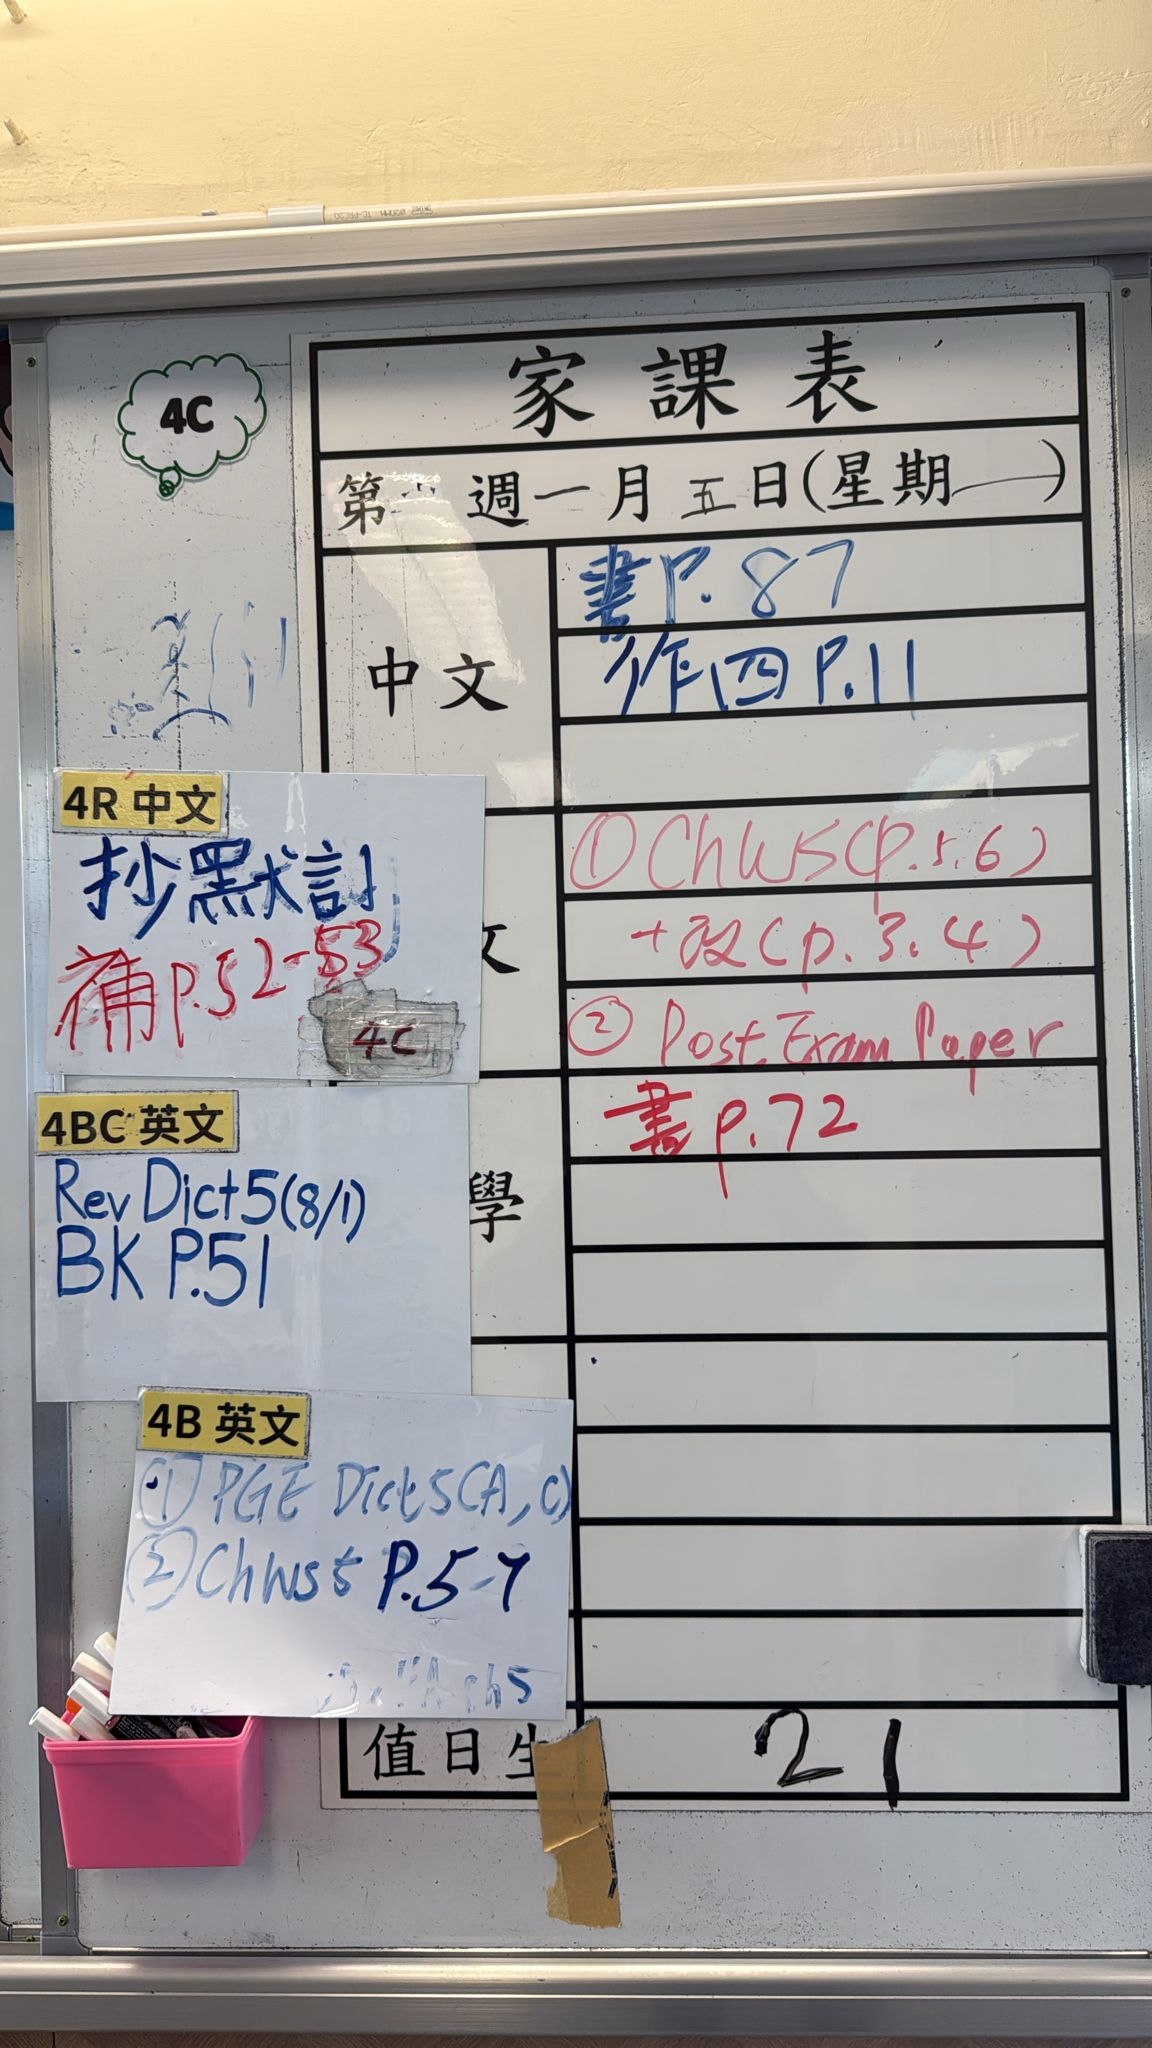 4C
家課表
第 週一月五日(星期一)
中文
書P.87
作四P.11
文
①Ch WS(P.5.6)
+改(p.3.4)
② Post Exam Paper
學
書p.72
4R 中文
抄默訂
補p.52-53
4C
4BC 英文
Rev Dict5(8/1)
BK P.51
4B 英文
① PGE Dict5(A,C)
② Ch WS 5 P.5-7
ch5
值日生
21